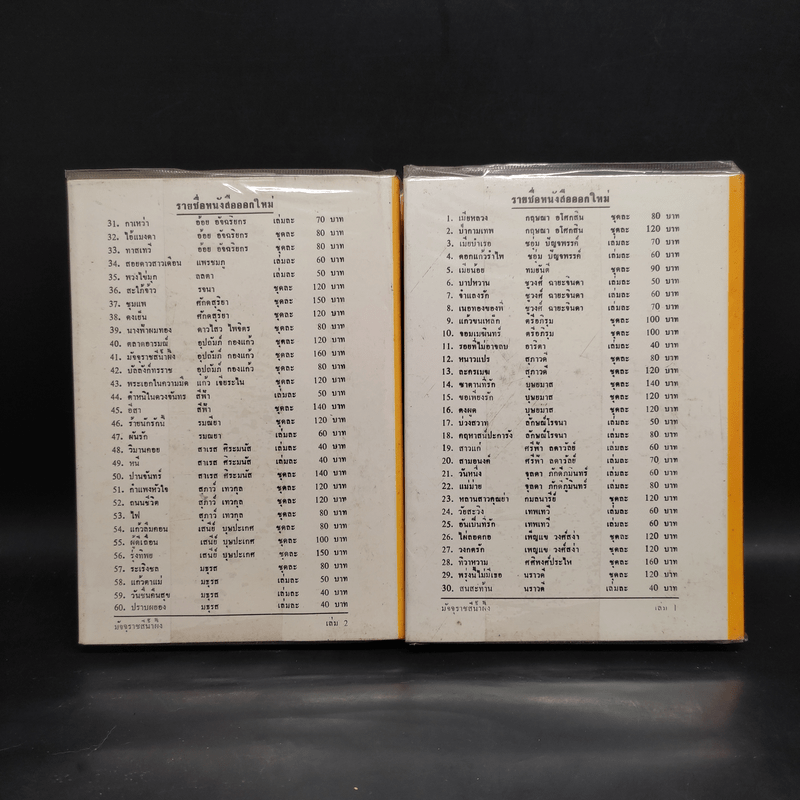 รายชื่อหนังสือออกใหม่
31. กาเหว่า อ้อย อัจฉริยกร เล่มละ 70 บาท
32. ไอ้แมงดา อ้อย อัจฉริยกร ชุดละ 80 บาท
33. ทาสเทวี อ้อย อัจฉริยกร ชุดละ 80 บาท
34. สอยดาวสาวเดือน แพรชมภู เล่มละ 60 บาท
35. พวงไข่มุก ลลดา เล่มละ 50 บาท
36. สะใภ้จ้าว รจนา ชุดละ 120 บาท
37. ชุมแพ ศักดิ์สุริยา ชุดละ 150 บาท
38. ดงเย็น ศักดิ์สุริยา ชุดละ 120 บาท
39. นางฟ้าผมทอง ดาวไสว ไพจิตร ชุดละ 80 บาท
40. ตลาดอารมณ์ อุปถัมภ์ กองแก้ว ชุดละ 120 บาท
41. มัจจุราชสีน้ำผึ้ง อุปถัมภ์ กองแก้ว ชุดละ 160 บาท
42. บัลลังก์ทรราช อุปถัมภ์ กองแก้ว ชุดละ 80 บาท
43. พระเอกในความมืด แก้ว เจียระไน ชุดละ 120 บาท
44. ตำหนิในดวงจันทร สีฟ้า เล่มละ 50 บาท
45. อีสา สีฟ้า ชุดละ 140 บาท
46. ร้ายนักรักนี้ รมณียา ชุดละ 120 บาท
47. ฝันรัก รมณยา เล่มละ 60 บาท
48. วิมานคอย สาเรส ศิระมนัส เล่มละ 40 บาท
49. หนี สาเรส ศิระมนัส เล่มละ 40 บาท
50. ปานจันทร์ สาเรส ศิระมนัส ชุดละ 140 บาท
51. กำแพงหัวใจ สุภาว์ เทวกุล ชุดละ 120 บาท
52. ถนนชีวิต สุภาว์ เทวกุล ชุดละ 120 บาท
53. ไฟ สุภาว์ เทวกุล ชุดละ 80 บาท
54. แก้วลืมคอน เสนีย์ บุษปะเกศ ชุดละ 80 บาท
55. ผีตีเรือน เสนีย์ บุษปะเกศ ชุดละ 100 บาท
56. รุ้งทิพย เสนีย์ บุษปะเกศ ชุดละ 150 บาท
57. ระเริงชล มธุรส ชุดละ 80 บาท
58. แก้วตาแม่ มธุรส เล่มละ 50 บาท
59. วันชื่นคืนสุข มธุรส เล่มละ 40 บาท
60. ปราบพยอง มธุรส เล่มละ 40 บาท
มัจจุราชสีน้ำผึ้ง เล่ม 2
รายชื่อหนังสือออกใหม่
1. เมียหลวง กฤษณา อโศกสิน ชุดละ 80 บาท
2. น้ำผึ้ง กฤษณา อโศกสิน ชุดละ 120 บาท
3. เมียบำเรอ ชอุ่ม ปัญจพรรค์ เล่มละ 70 บาท
4. ดอกแก้วรำไพ ชอุ่ม ปัญจพรรค์ เล่มละ 60 บาท
5. เมียน้อย ทมยันตี ชุดละ 90 บาท
6. บาปหวาน ชูวงศ์ ฉายะจินดา เล่มละ 50 บาท
7. จำเลยรัก ชูวงศ์ ฉายะจินดา เล่มละ 60 บาท
8. ชูวงศ์ ฉายะจินดา เล่มละ 70 บาท
9. แก้วขนเหล็ก ตรีอภิรุม ชุดละ 100 บาท
10. จอมเมฆินทร์ ตรีอภิรุม ชุดละ 100 บาท
11. รอยพี่ไม่อาจลบ อาริตา เล่มละ 40 บาท
12. หนาวแปร สุภาวดี ชุดละ 80 บาท
13. ละครเมฆ สุภาวดี ชุดละ 120 บาท
14. ชาตานี้รัก บุษยมาส ชุดละ 140 บาท
15. ขอเพียงรัก บุษยมาส ชุดละ 120 บาท
16. ดงผู้ดี บุษยมาส ชุดละ 120 บาท
17. บ่วงสวาท ลักษณ์โรจนา เล่มละ 50 บาท
18. คฤหาสน์ปะการัง ลักษณ์โรจนา เล่มละ 80 บาท
19. สาวแก่ ศรีฟ้า ลดาวัลย์ เล่มละ 60 บาท
20. สามอนงค์ ศรีฟ้า ลดาวัลย์ เล่มละ 70 บาท
21. วันหนึ่ง จุลดา ภักดีภูมินทร์ เล่มละ 60 บาท
22. แม่ม่าย จุลดา ภักดีภูมินทร์ ชุดละ 80 บาท
23. หลานสาวคุณย่า กมลนารีย์ ชุดละ 120 บาท
24. วัยสะวิง เทพเทวี เล่มละ 60 บาท
25. อันเป็นที่รัก เทพเทวี เล่มละ 60 บาท
26. ไผ่ลอดกอ เพ็ญแข วงศ์สง่า ชุดละ 120 บาท
27. วงกตรัก เพ็ญแข วงศ์สง่า ชุดละ 120 บาท
28. ทิวาหวาม ศศิพงศ์ประไพ ชุดละ 160 บาท
29. พรุ่งนี้ไม่มีเธอ นราวดี ชุดละ 120 บาท
30. สนสะท้าน นราวดี เล่มละ 40 บาท
มัจจุราชสีน้ำผึ้ง เล่ม 1